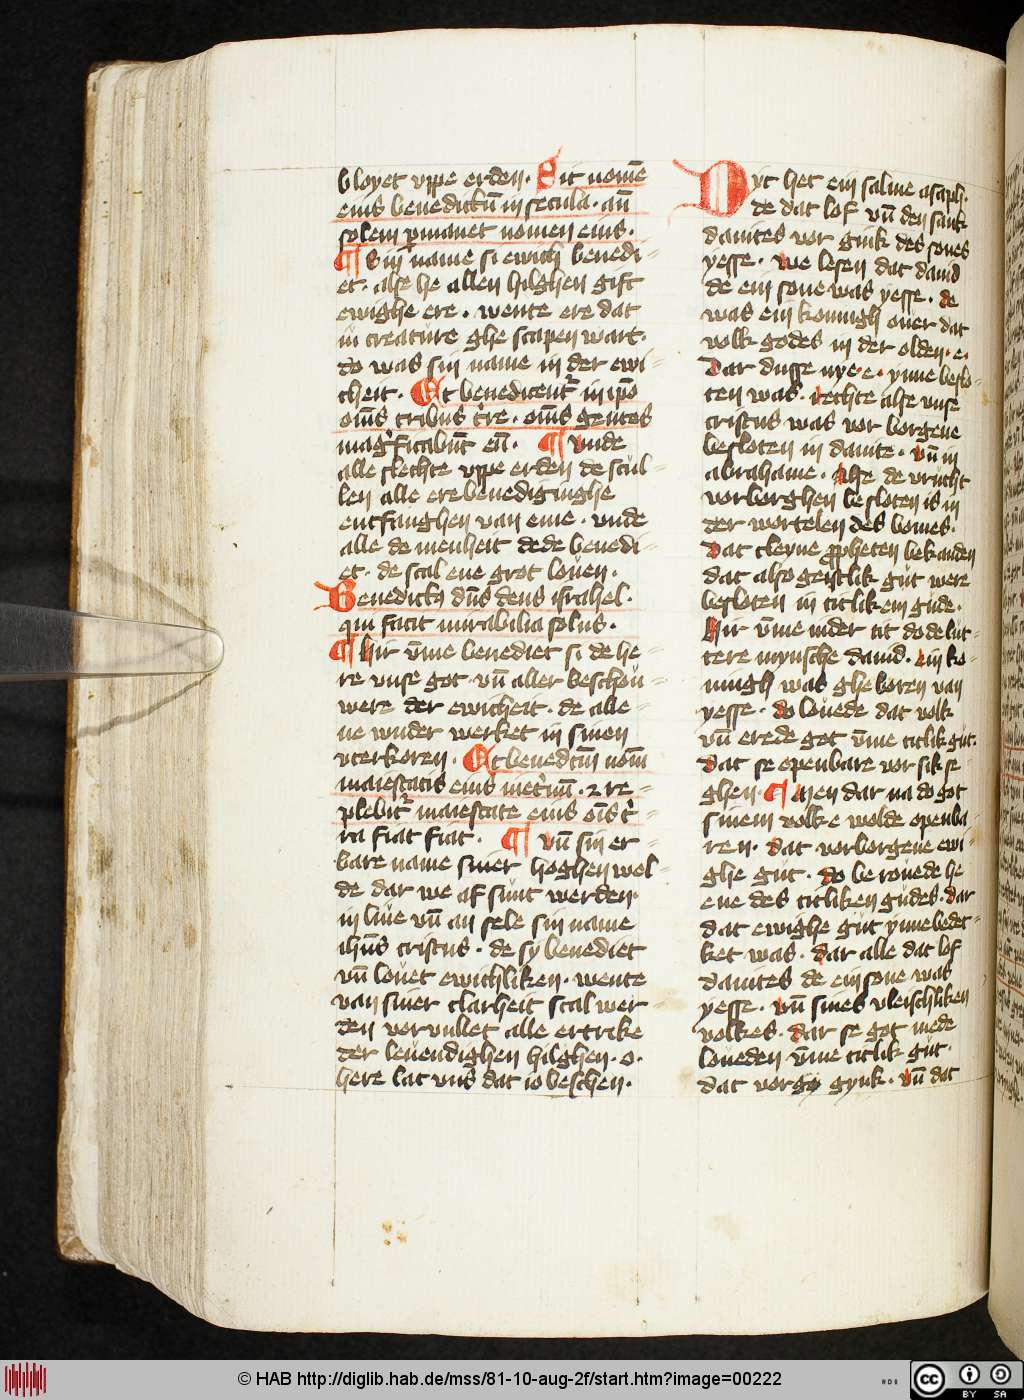 bloyet vppe erden. Sit nomē
eius benedictū in secula. an̄
solem permanet nomen eius.
¶ Sin name si ewich benedi=
et. alse he allen hilghen gift
ewighe ere. wente ere dat
in creature ghe scapen wart.
do was sin name in der ewi=
cheit. Et benedicent᷑ in ip̄o
om̄s tribus t᷑re. om̄s gentes
mag᷑ficabūt eū. ¶ Vnde
alle slechte vppe erden de scul=
len alle ere benedginghe
entfanghen van eme. vnde
alle de menheit dede benedi=
et. de scal ene grot louen.
Benedictꝰ dn̄s deus israhel.
qui facit mirabilia solus.
¶ Hir v̄me benediet si de he=
re vnse got vn̄ aller beschou=
were der ewicheit. de alle=
ne wnder werket in sinen
vterkoren. Et benedictū nom̄
maiestatis eius inet᷑nū. ⁊ re=
plebit᷑ maiestate eius om̄s t᷑=
ra fiat fiat. ¶ Vn̄ sin er=
bare name siner hoghen wol=
de dar we af sunt werden.
in liue vn̄ an sele sin name
ihūs cristus. de sy benediet
vn̄ louet ewichliken. wente
van siner clarheit scal wer=
den vorvullet alle ertrike
der leuendighen hilghen. o.
here lat vns dat io beschen.
Dyt het ein salme asaph.
de dat lof vn̄ den sank
dauites vor gink des sones
yesse. We lesen dat dauid
de ein sone was yesse. de
was ein konnigh ouer dat
volk godes in der olden. e.
Dar dusse nye. e. ynne beslo=
ten was. Rechte alse vnse
cristus was vor borgene
besloten in dauite. vn̄ in
abrahame. Alse de vrucht
vorborghen besloten is in
der wortelen des bomes.
Dat cleyne propheten bekanden
dat also geistlik gut were
besloten in titlikem gude.
Hir v̄me inder tit do de lut=
tere mynsche dauid. ein ko=
ningh was ghe boren van
yesse. do louede dat volk
vn̄ erede got v̄me titlik gut.
Dat se openbare vor sik se=
ghen. ¶ Men dar na do got
sinem volke wolde openba=
ren. dat vorborgene ewi=
ghe gut. do be rouede he
ene des titliken gudes. dar
dat ewighe gut ynne bedec=
ket was. Dar alle dat lof
dauites de ein sone was
yesse. vn̄ sines vleischliken
volkes. dar se got mede
loueden v̄me titlik gut.
dat vorgy gynk. vn̄ dat
© HAB http://diglib.hab.de/mss/81-10-aug-2f/start.htm?image=00222
CC BY SA